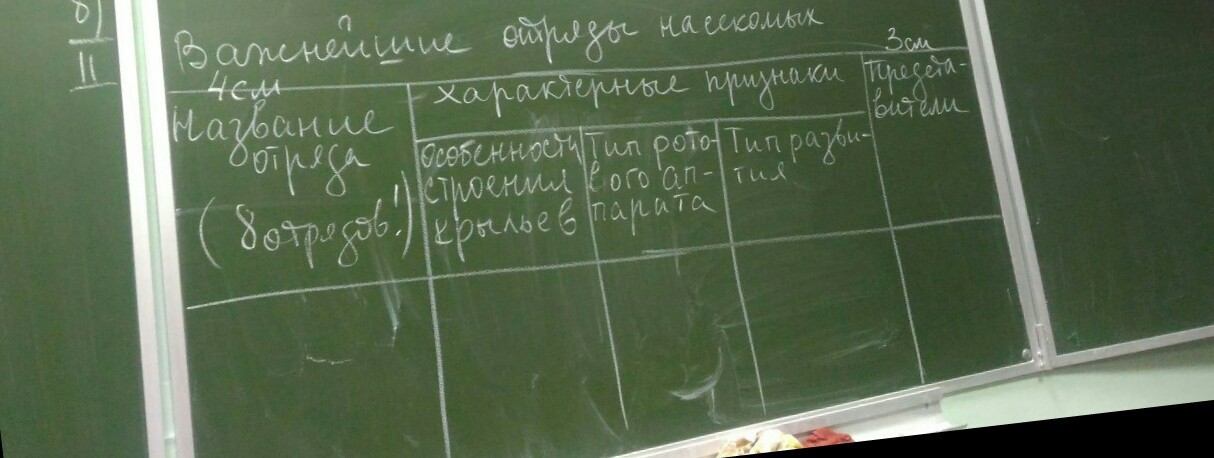 б)
II
Важнейшие отряды насекомых
4см
3см
Название
отряда
(8 отрядов!)
характерные признаки
Предста-
вители
особенности
строения
крыльев
Тип рото-
вого ап-
парата
Тип разви-
тия